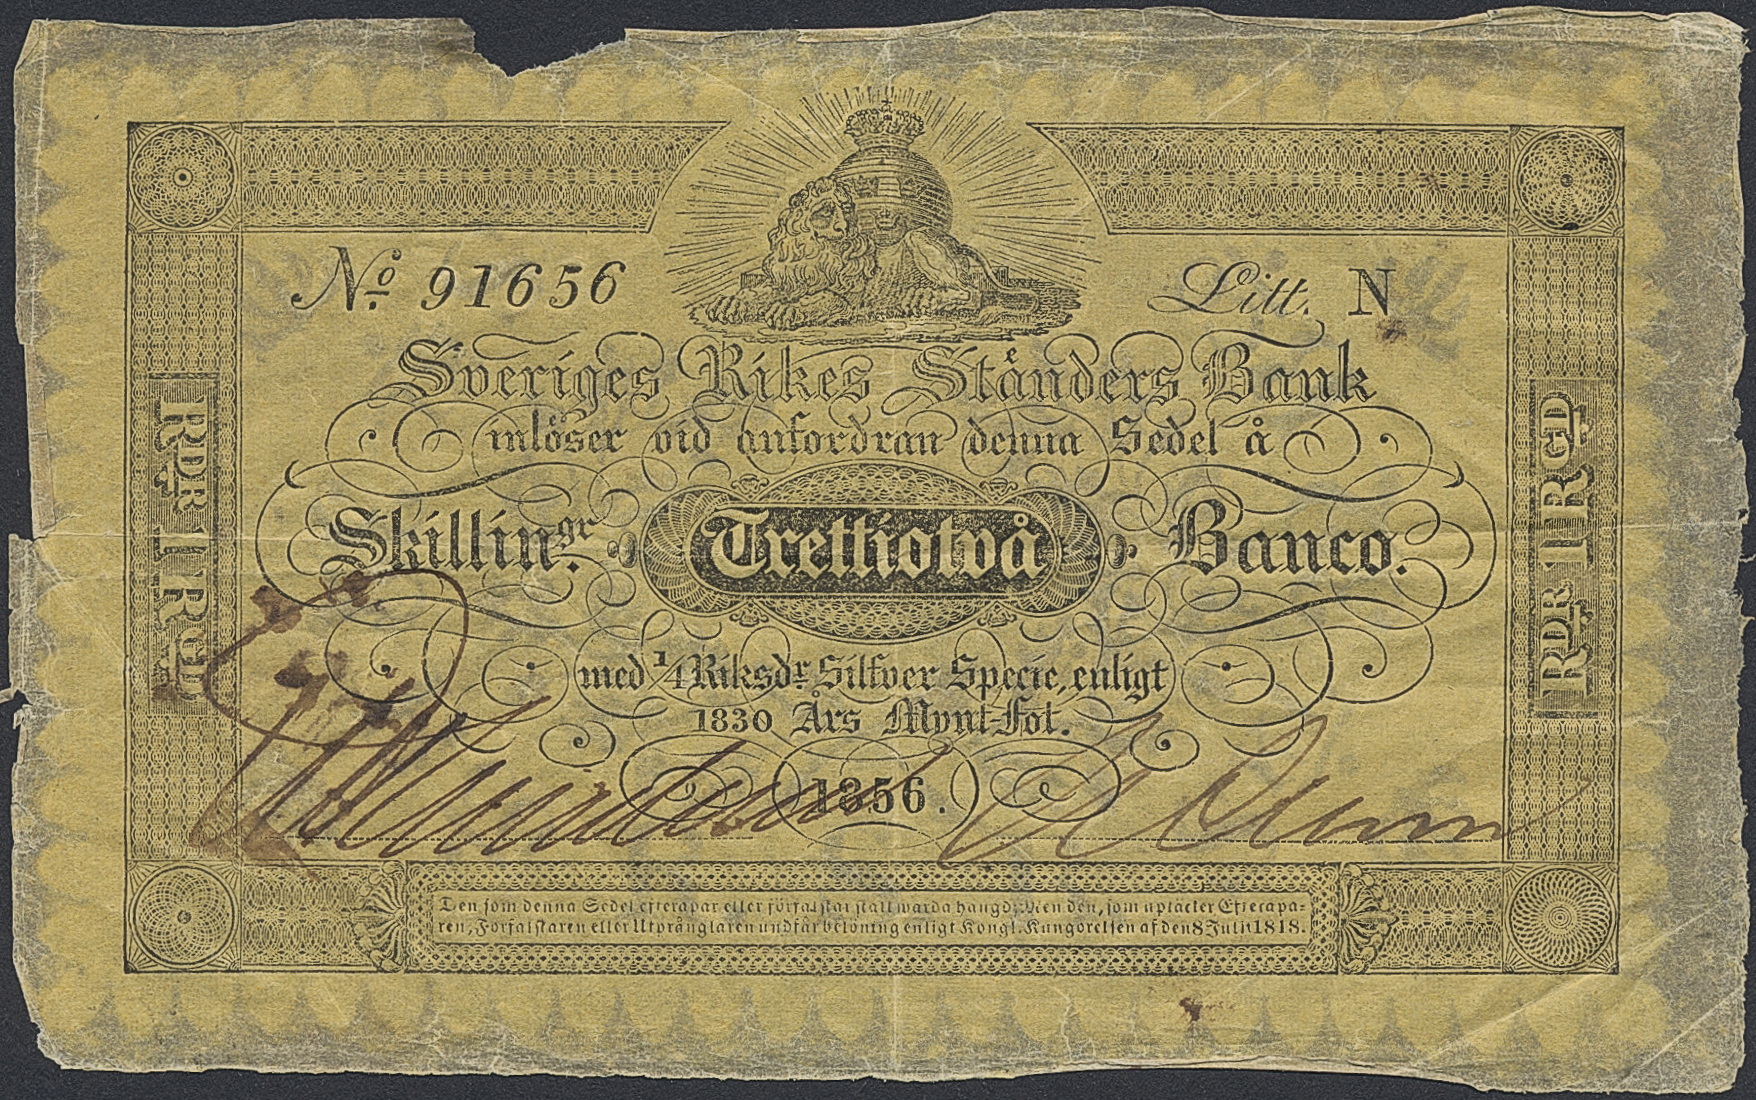 No. 91656
Litt. N
Sveriges Rikes Ständers Bank
inlöser vid anfordran denna Sedel å
Skillingr. Trettiotvå Banco.
med 1/4 Riksdr Silfver Specie, enligt
1830 Års Mynt-Fot.
1856.
Den som denna Sedel efterapar eller förfalskar skall warda hängd; Men den, som uptäcker Efterapa-
ren, Förfalskaren eller Utprånglaren undfår belöning enligt Kongl. Kungörelsen af den 8 Julii 1818.